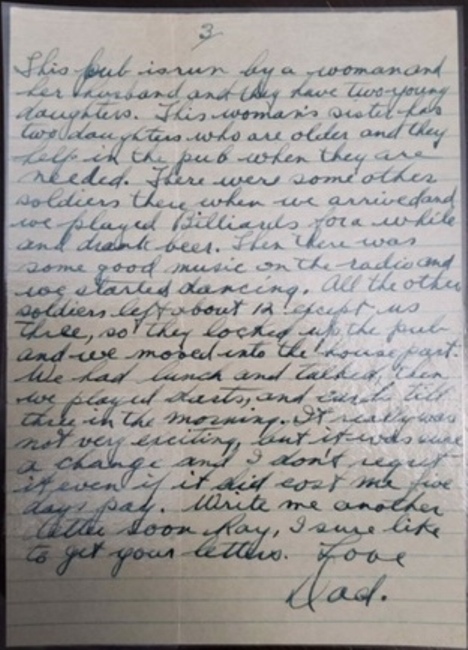 3
This pub is run by a woman and
her husband and they have two young
daughters. This woman's sister has
two daughters who are older and they
help in the pub when they are
needed. There were some other
soldiers there when we arrived and
we played Billiards for a while
and drank beer. Then there was
some good music on the radio and
we started dancing. All the other
soldiers left about 12 except us
three, so they locked up the pub
and we moved into the house part.
We had lunch and talked, then
we played darts, and cards till
three in the morning. It really was
not very exciting, but it was sure
a change and I don't regret
it even if it did cost me five
days pay. Write me another
letter soon Kay, I sure like
to get your letters. Love
Dad.